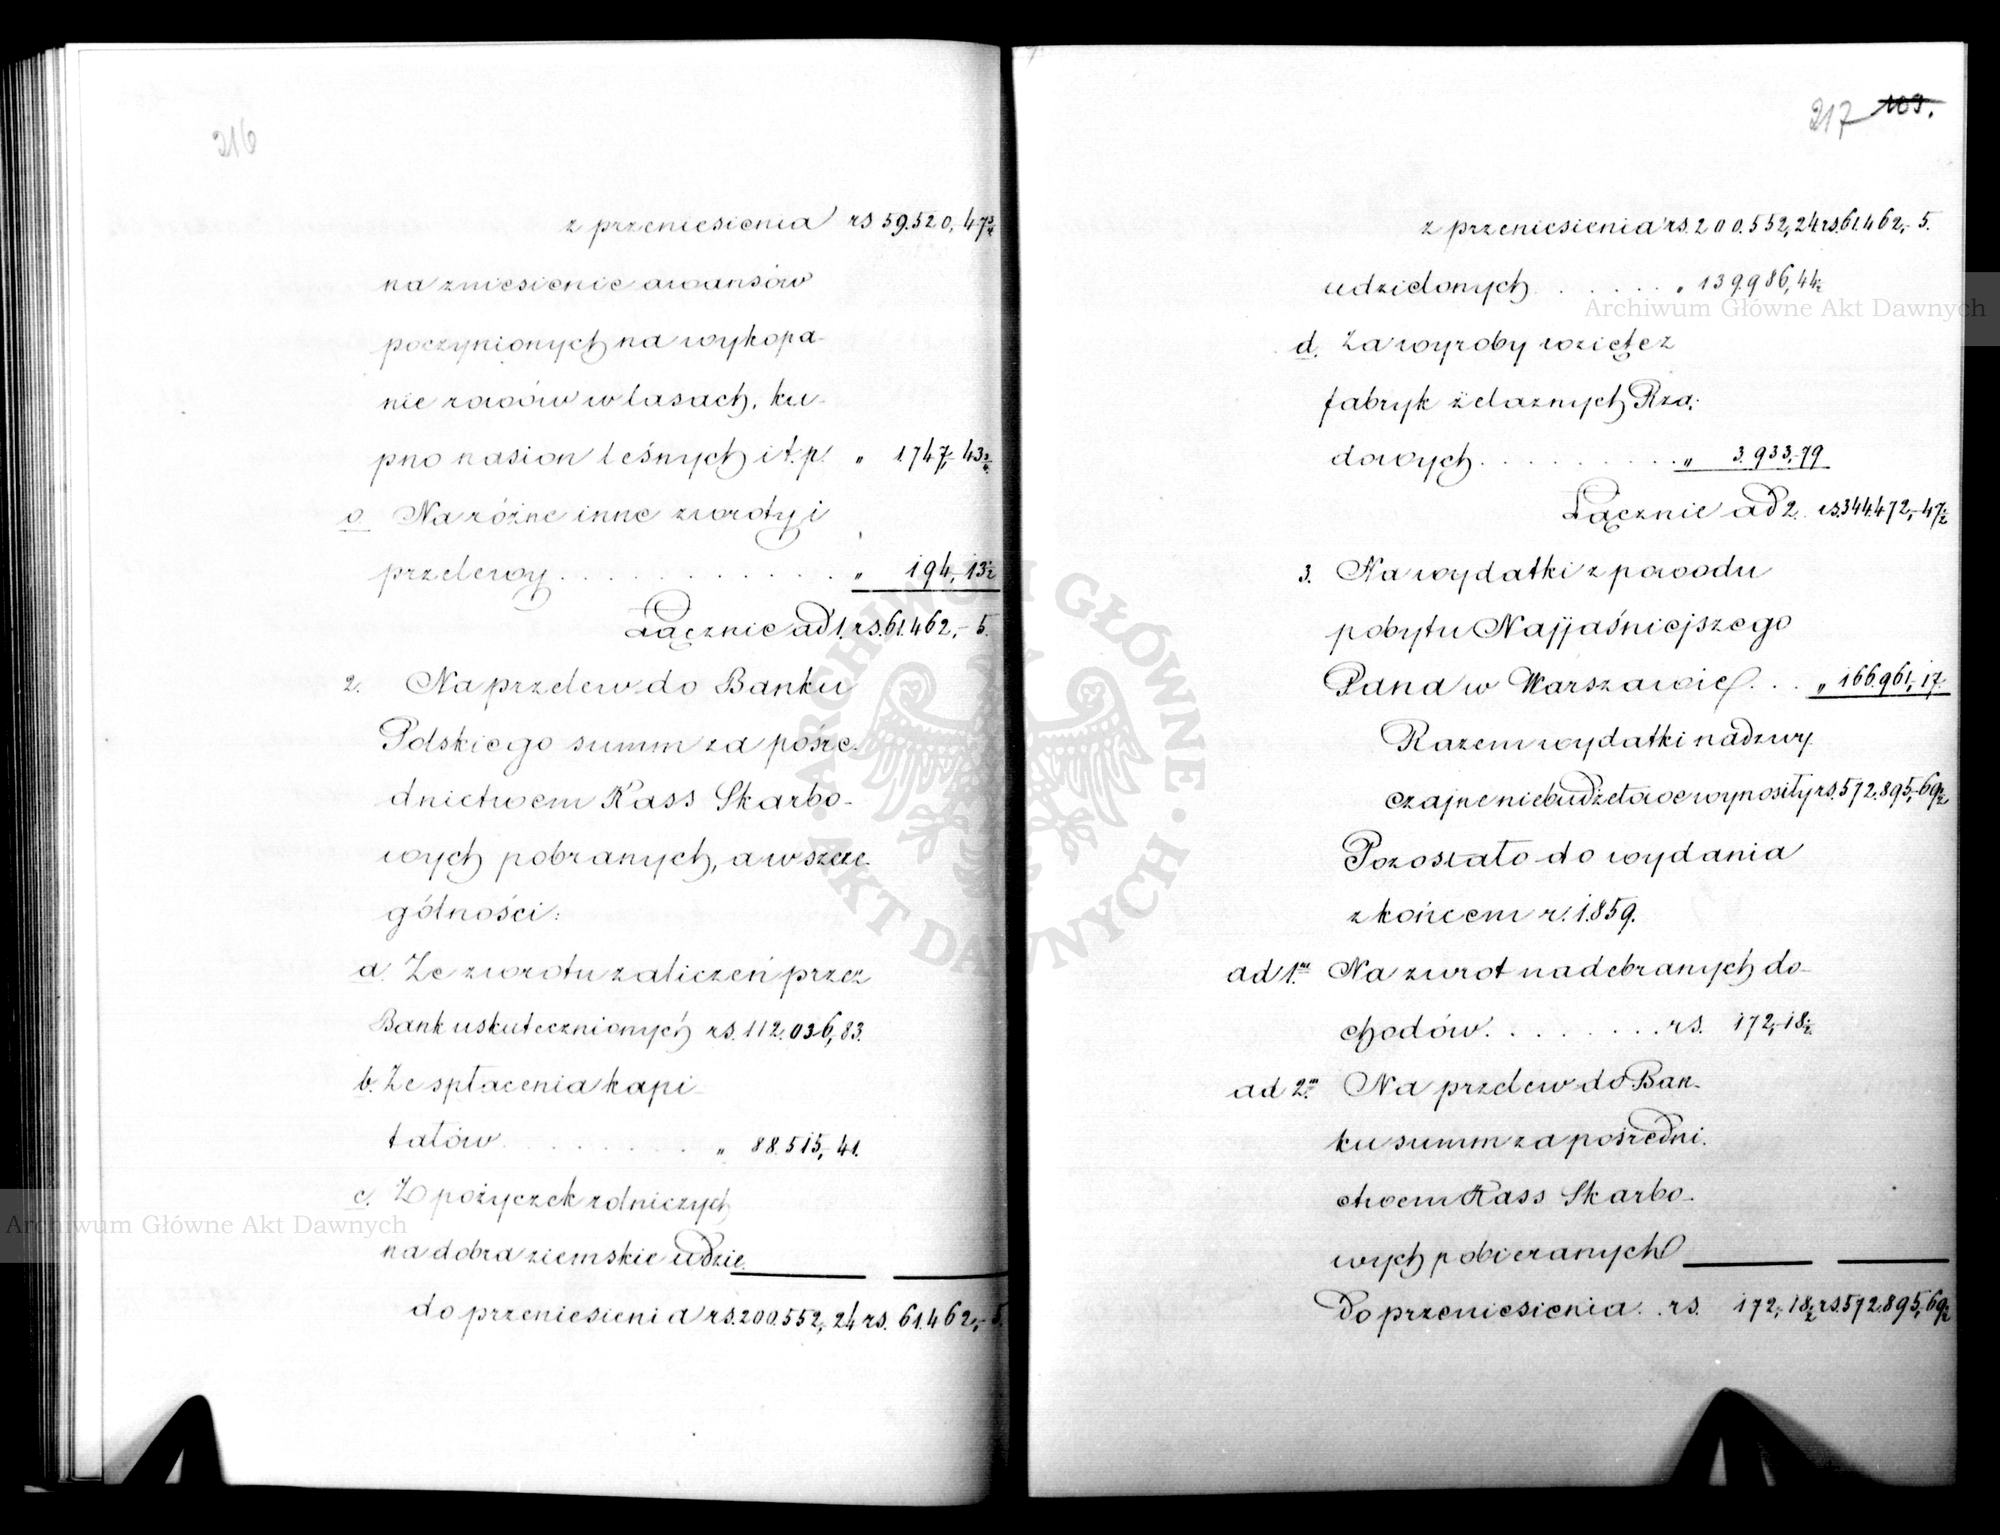 216
z przeniesienia rs 59.520, 47½
na zniesienie awansów
poczynionych na wykopa-
nie rowów w lasach, ku-
pno nasion leśnych i t. p. " 1747,- 43½
o. Na różne inne zwroty i
przelewy . . . . . . . . . . . . " 194,- 13½
Łącznie ad 1. rs. 61.462,- 5.
2. Na przelew do Banku
Polskiego summ za pośre-
dnictwem Kass Skarbo-
wych pobranych, a w szcze-
gólności:
a. Ze zwrotu zaliczeń przez
Bank uskutecznionych rs. 112.036, 83.
b. Ze spłacenia kapi-
tałów . . . . . . . . . " 88.515,- 41.
c. Z pożyczek rolniczych
na dobra ziemskie udzie-
do przeniesienia rs. 200.552,- 24 rs. 61.462,- 5.
217 109.
z przeniesienia rs. 200.552,- 24 rs. 61.462,- 5.
udzielonych . . . . . . . " 139.986, 44½
d. Za wyroby wzięte z
fabryk żelaznych Rzą-
dowych . . . . . . . . . . " 3.933,- 79
Łącznie ad 2. rs. 344.472,- 47½
3. Na wydatki z powodu
pobytu Najjaśniejszego
Pana w Warszawie . . . " 166.961,- 17.
Razem wydatki nadzwy-
czajne niebudżetowe wynosiły rs. 572.895,- 69½
Pozostało do wydania
z końcem r. 1859.
ad 1m. Na zwrot nadebranych do-
chodów . . . . . . . . rs. 172,- 18½
ad 2m. Na przelew do Ban-
ku summ za pośredni-
ctwem Kass Skarbo-
wych pobieranych
Do przeniesienia . . rs. 172,- 18½ rs. 572.895,- 69½
Archiwum Główne Akt Dawnych
Archiwum Główne Akt Dawnych
ARCHIWUM GŁÓWNE · AKT DAWNYCH ·